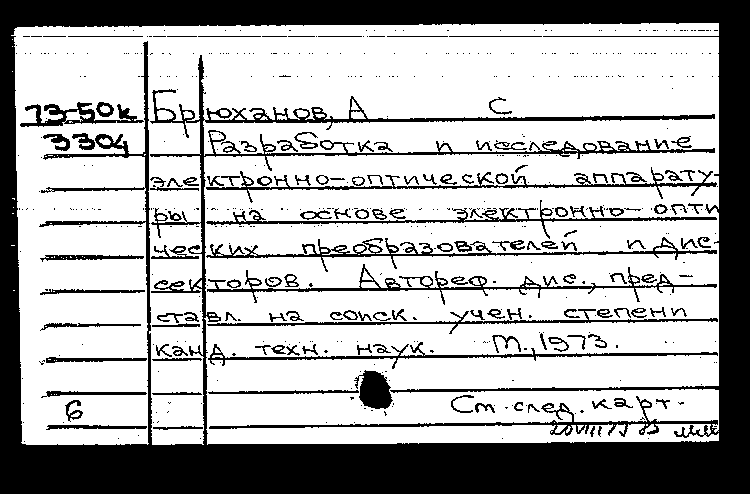 73-50к Брюханов, А С
3304 Разработка и исследование
электронно-оптической аппарату-
ры на основе электронно-опти
ческих преобразователей и дис-
секторов. Автореф. дис., пред-
ставл. на соиск. учен. степени
канд. техн. наук. М., 1973.
6 См. след. карт.